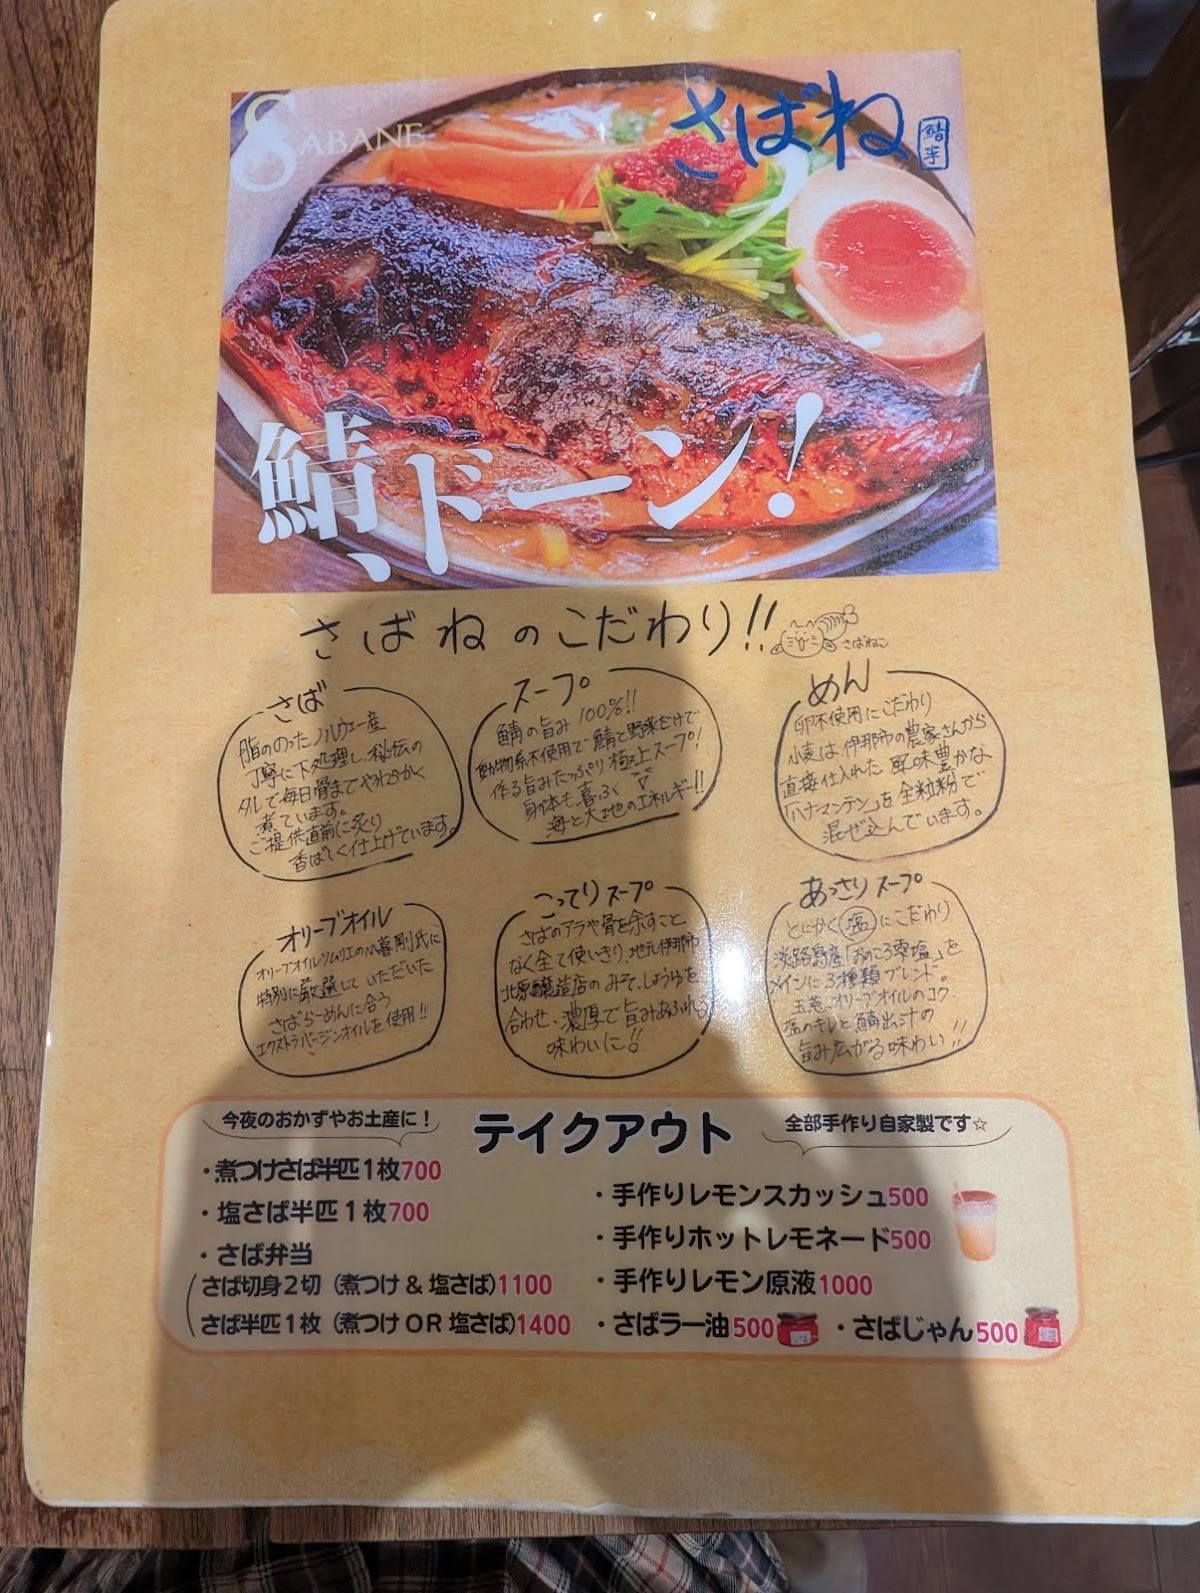 SABANE
さばね
鯖、ドーン!
さばねのこだわり!!
さばねこ
さば
脂ののったノルウェー産
丁寧に下処理し、秘伝の
タレで毎日骨までやわらかく
煮ています。
ご提供直前に炙り
香ばしく仕上げています。
スープ
鯖の旨み100%!!
動物系不使用で鯖と野菜だけで
作る旨みたっぷり極上スープ!
身体も喜ぶ
海と大地のエネルギー!!
めん
卵不使用にこだわり
小麦は伊那市の農家さんから
直接仕入れた風味豊かな
「ハナマンテン」を全粒粉で
混ぜ込んでいます。
オリーブオイル
オリーブオイルソムリエの小喜剛氏に
特別に厳選していただいた
さばらーめんに合う
エクストラバージンオイルを使用!!
こってりスープ
さばのアラや骨を余すこと
なく全て使いきり、地元伊那市
北原醸造店のみそ、しょうゆを
合わせ、濃厚で旨みあふれる
味わいに!!
あっさりスープ
とにかく塩にこだわり
淡路島産「おのころ雫塩」を
メインに3種類ブレンド。
玉葱、オリーブオイルのコク
塩のキレと鯖出汁の
旨み広がる味わい!!
今夜のおかずやお土産に!
テイクアウト
全部手作り自家製です☆
・煮つけさば半匹1枚700
・塩さば半匹1枚700
・さば弁当
さば切身2切(煮つけ&塩さば)1100
さば半匹1枚(煮つけOR塩さば)1400
・手作りレモンスカッシュ500
・手作りホットレモネード500
・手作りレモン原液1000
・さばラー油500
・さばじゃん500